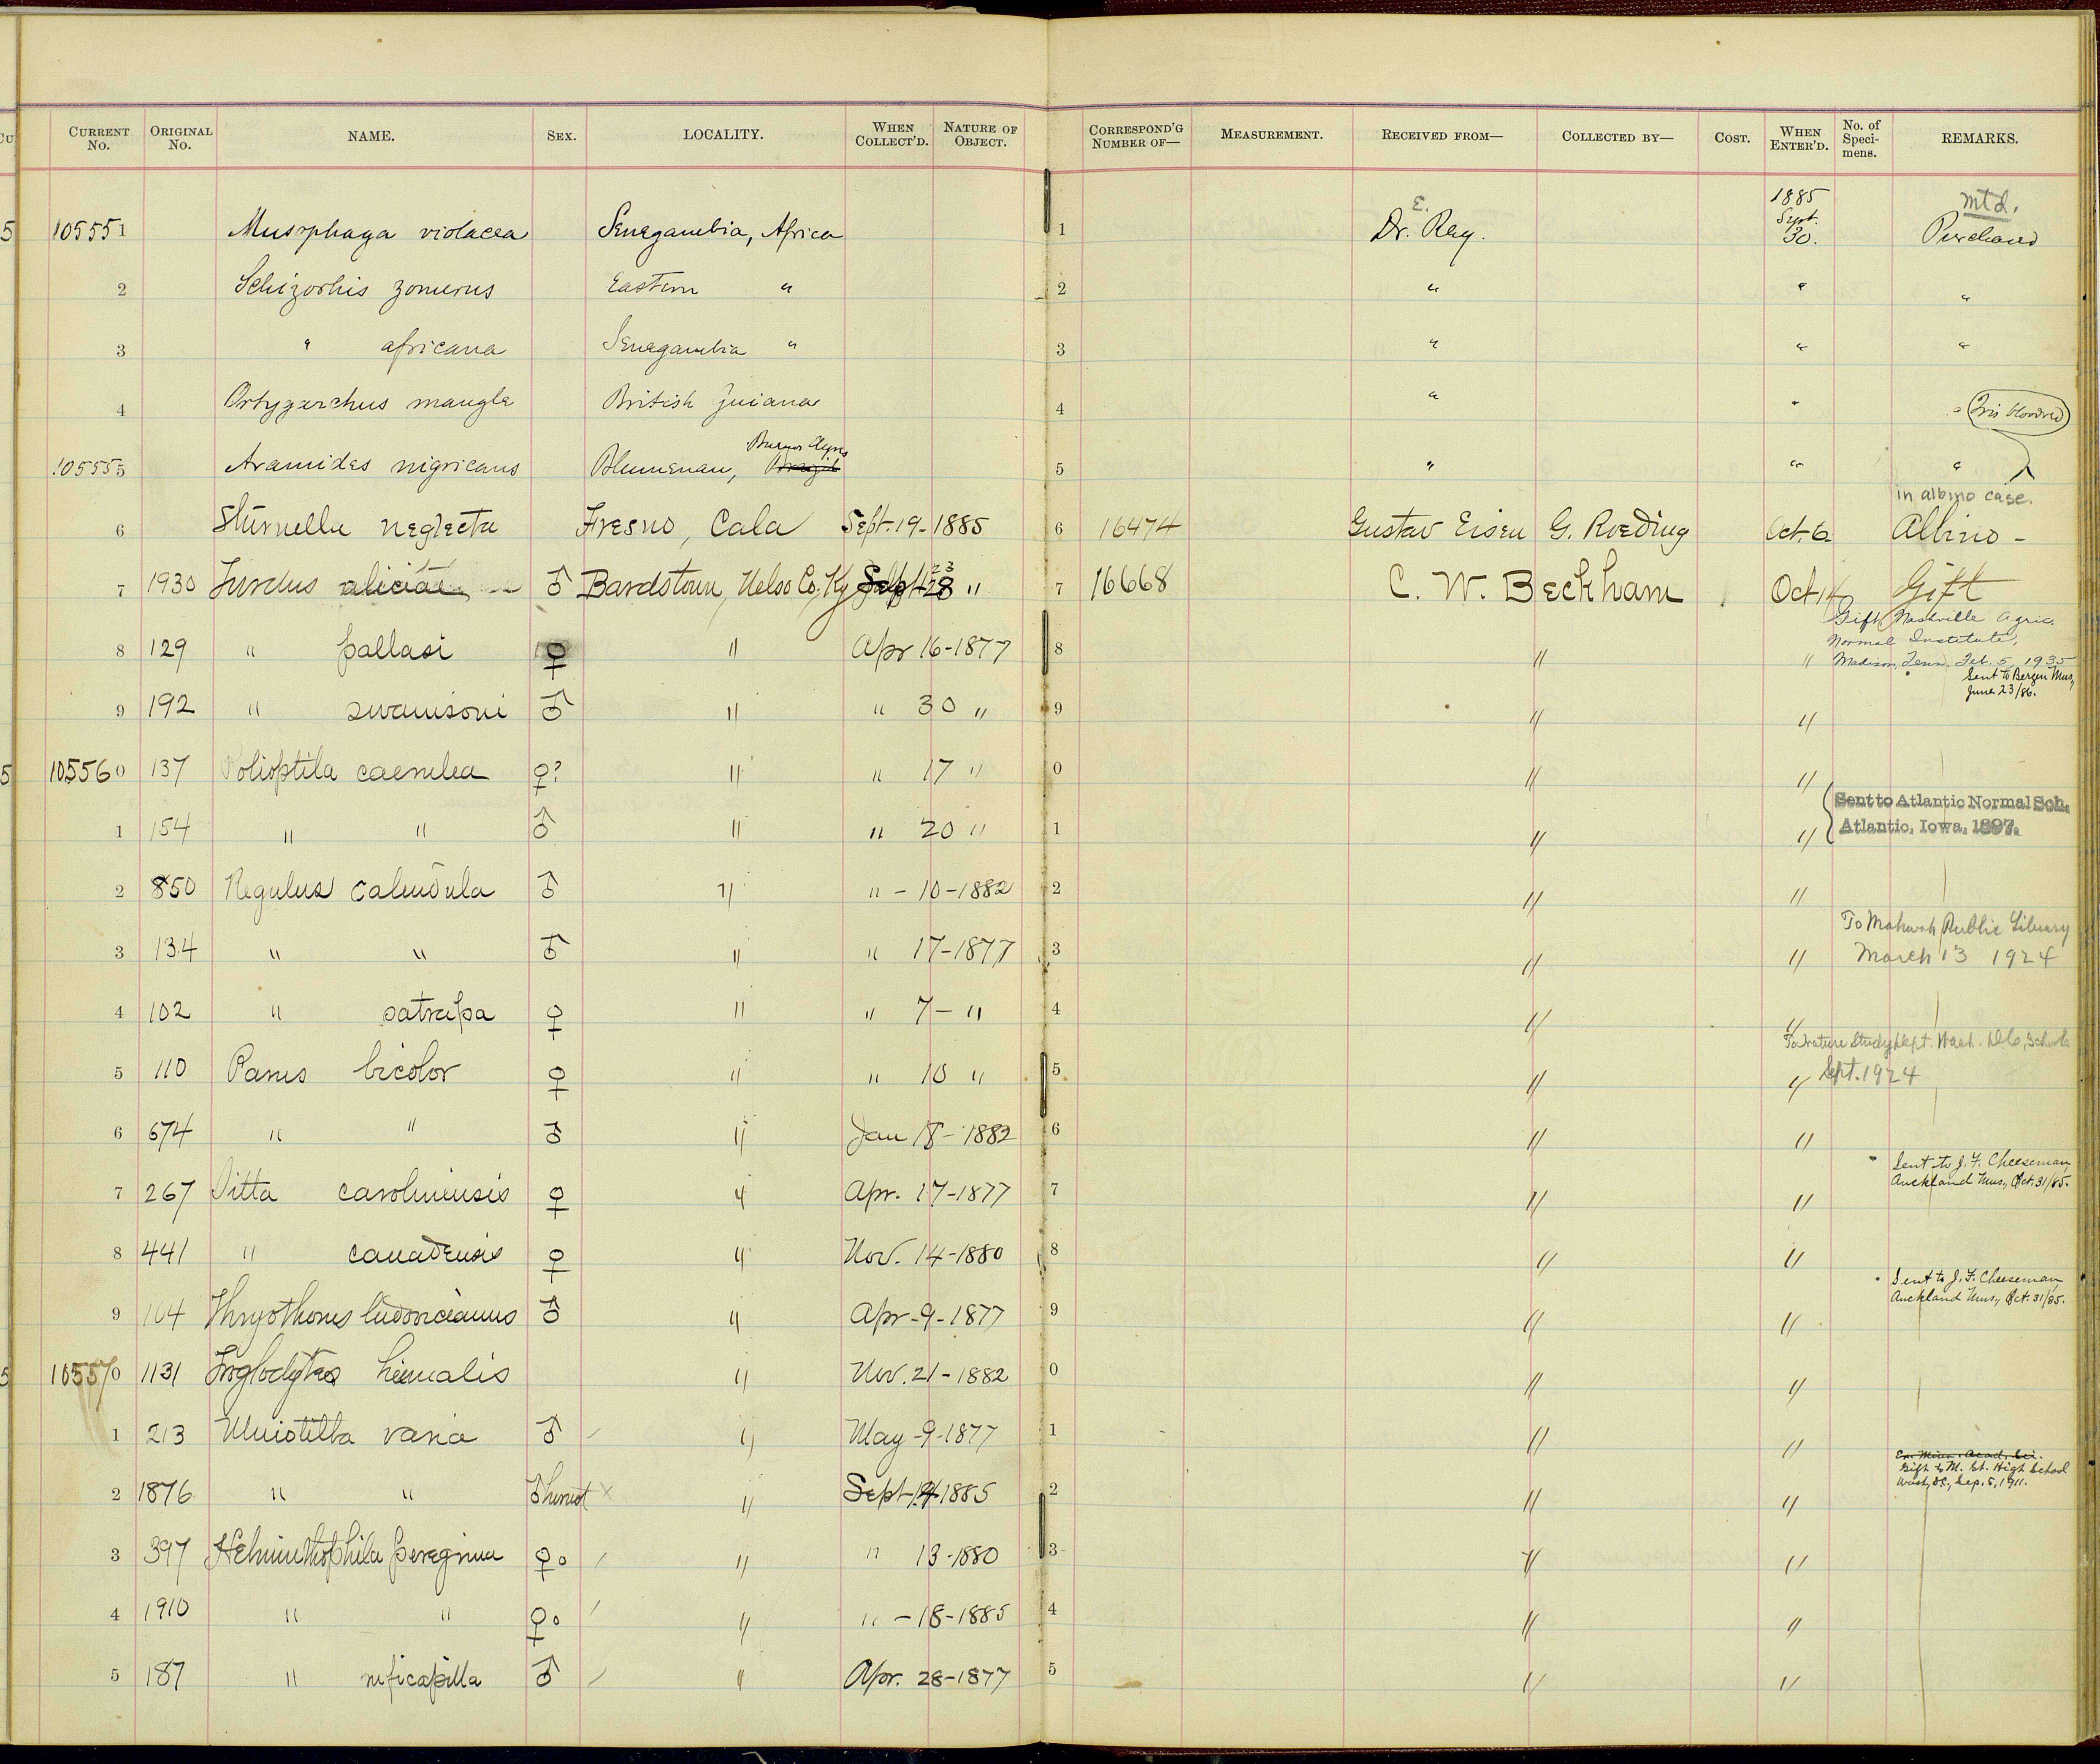 CURRENT No. ORIGINAL No. NAME. SEX. LOCALITY. WHEN COLLECT'D. NATURE OF OBJECT. CORRESPOND'G NUMBER OF— MEASUREMENT. RECEIVED FROM— COLLECTED BY— COST. WHEN ENTER'D. No. of Speci- mens. REMARKS.
105551 Musophaga violacea Senegambia, Africa 1 Dr. E. Rey. 1885 Sept. 30. mtd. Purchased
2 Schizorhis zonurus Eastern " 2 " " "
3 " africana Senegambia " 3 " " "
4 Ortygarchus mangle British Guiana 4 " " " Iris bloodred
105555 Aramides nigricans Blumenau, Brazil Buenos Ayres 5 " " "
6 Sturnella neglecta Fresno, Cala Sept. 19-1885 6 16474 Gustav Eisen G. Roeding Oct. 6. in albino case. Albino -
7 1930 Turdus aliciae ♂ Bardstown, Nelso Co, Ky Sept 28 23 " 7 16668 C. W. Beckham Oct 14 Gift
8 129 " pallasi ♀ " Apr 16-1877 8 " " Gift Nashville Agric. Normal Institute, Madison, Tenn. Feb. 5, 1935
9 192 " swainsoni ♂ " " 30 " 9 " " Sent to Bergen Mus, June 23/86.
105560 137 Polioptila caerulea ♀? " " 17 " 0 " "
1 154 " " ♂ " " 20 " 1 " " Sent to Atlantic Normal Sch. Atlantic, Iowa, 1897.
2 850 Regulus calendula ♂ " " - 10-1882 2 " "
3 134 " " ♂ " " 17-1877 3 " " To Mahwah Public Library March 13 1924
4 102 " satrapa ♀ " " 7- " 4 " "
5 110 Parus bicolor ♀ " " 10 " 5 " " To Nature Study Dept. Wash. D.C. Schools Sept. 1924
6 674 " " ♂ " Jan 18-1882 6 " "
7 267 Sitta carolinensis ♀ " Apr. 17-1877 7 " " Sent to J. F. Cheeseman, Auckland Mus., Oct. 31/85.
8 441 " canadensis ♀ " Nov. 14-1880 8 " "
9 104 Thryothorus ludovicianus ♂ " Apr-9-1877 9 " " Sent to J. F. Cheeseman, Auckland Mus., Oct. 31/85.
105570 1131 Troglodytes hiemalis " Nov. 21-1882 0 " "
1 213 Mniotilta varia ♂ " May-9-1877 1 " "
2 1876 " " ♂ " Sept 1885 2 " " Ex. Minn. Acad. Sci. Gift to M. St. High School Wash, D.C., Sep. 5, 1911.
3 397 Helminthophila peregrina ♀o " " 13-1880 3 " "
4 1910 " " ♀o " " -18-1885 4 " "
5 187 " ruficapilla ♂ " Apr. 28-1877 5 " "